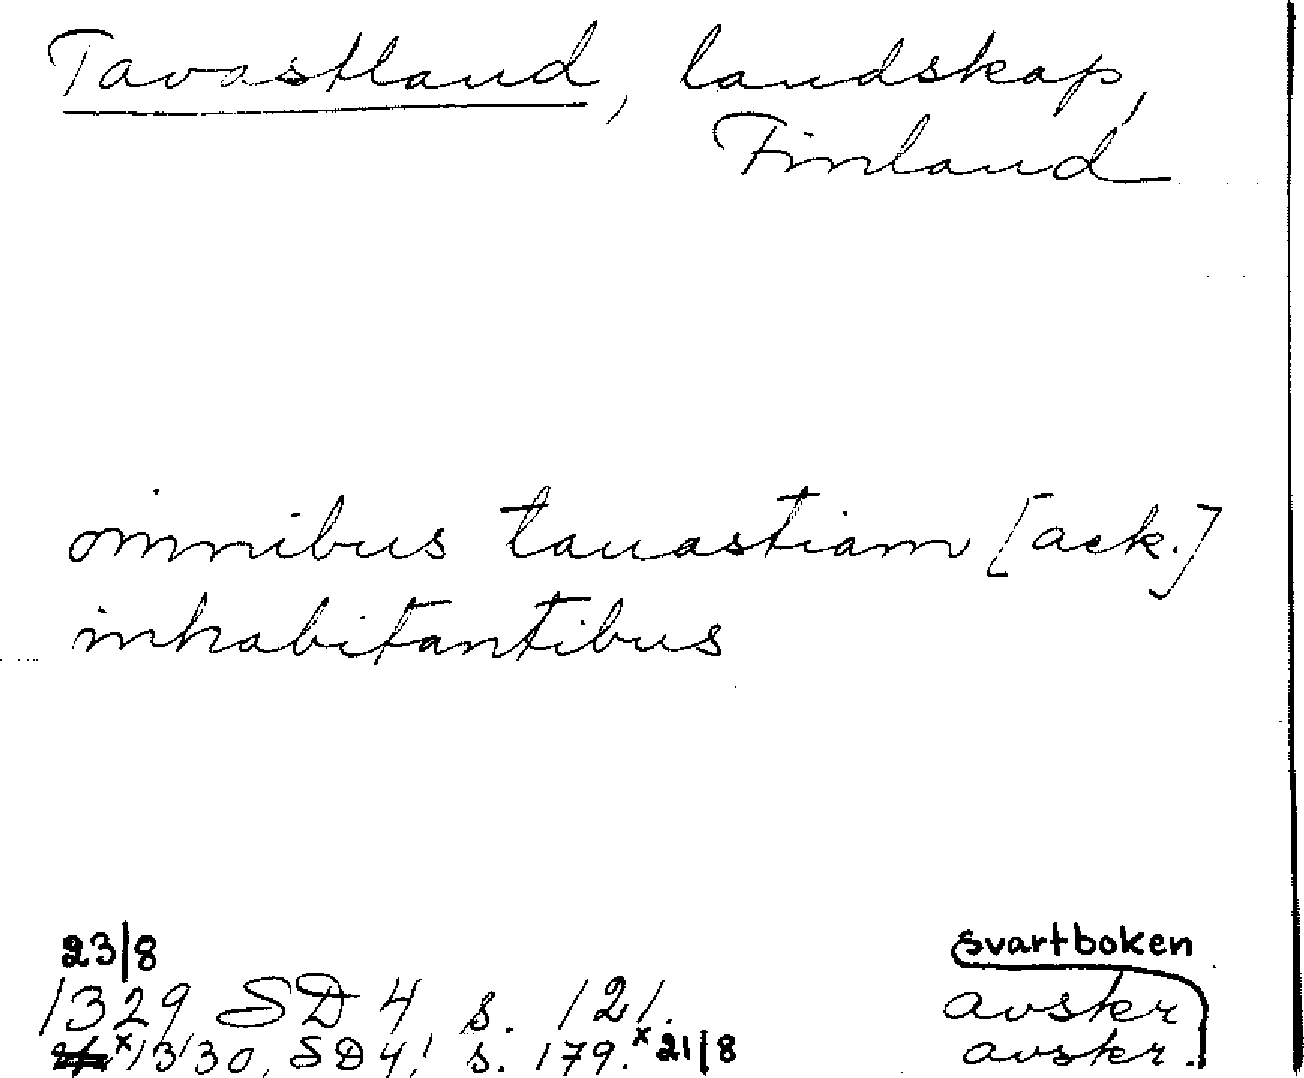 Tavastland, landskap,
Finland
omnibus tauastiam [ack.]
inhabitantibus
23/8
svartboken
1329 SD 4 s. 121. avskr
x 1330, SD 4, s. 179. x 21/8 avskr.